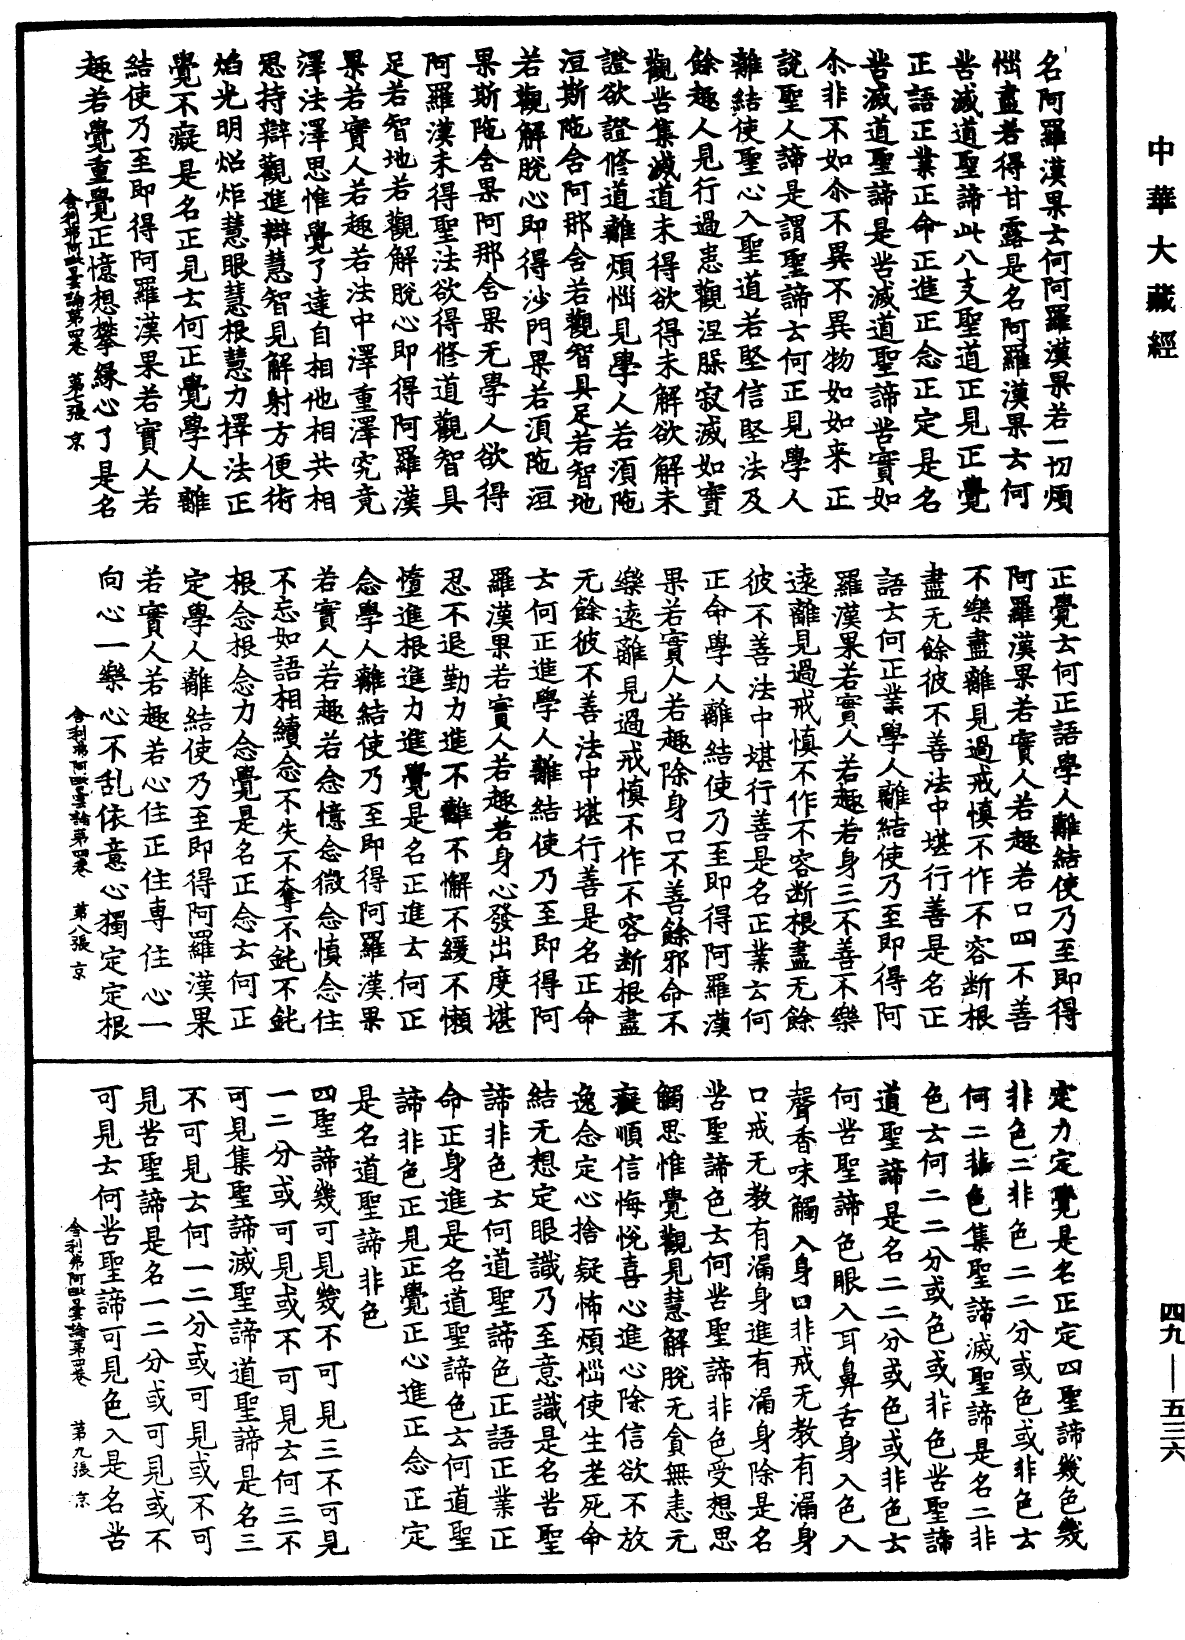 中華大藏經
名阿羅漢果云何阿羅漢果若一切煩
惱盡若得甘露是名阿羅漢果云何
苦滅道聖諦此八支聖道正見正覺
正語正業正命正進正念正定是名
苦滅道聖諦是苦滅道聖諦苦實如
尒非不如尒不異不異物如如来正
說聖人諦是謂聖諦云何正見學人
離結使聖心入聖道若堅信堅法及
餘趣人見行過患觀涅槃寂滅如實
觀苦集滅道未得欲得未解欲解未
證欲證修道離煩惱見學人若須陁
洹斯陁含阿那含若觀智具足若智地
若觀解脫心即得沙門果若須陁洹
果斯陁含果阿那含果无學人欲得
阿羅漢未得聖法欲得修道觀智具
足若智地若觀解脫心即得阿羅漢
果若實人若趣若法中澤重澤究竟
澤法澤思惟覺了達自相他相共相
思持辯觀進辯慧智見解射方便術
焰光明炤炬慧眼慧根慧力擇法正
覺不癡是名正見云何正覺學人離
結使乃至即得阿羅漢果若實人若
趣若覺重覺正憶想攀緣心了是名
舍利弗阿毗曇論第四卷 第七張 京
正覺云何正語學人離結使乃至即得
阿羅漢果若實人若趣若口四不善
不樂盡離見過戒慎不作不容断根
盡无餘彼不善法中堪行善是名正
語云何正業學人離結使乃至即得阿
羅漢果若實人若趣若身三不善不樂
遠離見過戒慎不作不容断根盡无餘
彼不善法中堪行善是名正業云何
正命學人離結使乃至即得阿羅漢
果若實人若趣除身口不善餘邪命不
樂遠離見過戒慎不作不容断根盡
无餘彼不善法中堪行善是名正命
云何正進學人離結使乃至即得阿
羅漢果若實人若趣若身心發出度堪
忍不退勤力進不離不懈不緩不懶
憧進根進力進覺是名正進云何正
念學人離結使乃至即得阿羅漢果
若實人若趣若念憶念微念慎念住
不忘如語相續念不失不奪不鈍不鈍
根念根念力念覺是名正念云何正
定學人離結使乃至即得阿羅漢果
若實人若趣若心住正住専住心一
向心一樂心不乱依意心獨定定根
舍利弗阿毗曇論第四卷 第八張 京
定力定覺是名正定四聖諦幾色幾
非色二非色二二分或色或非色云
何二非色集聖諦滅聖諦是名二非
色云何二二分或色或非色苦聖諦
道聖諦是名二二分或色或非色云
何苦聖諦色眼入耳鼻舌身入色入
聲香味觸入身口非戒无教有漏身
口戒无教有漏身進有漏身除是名
苦聖諦色云何苦聖諦非色受想思
觸思惟覺觀見慧解脫无貪無恚无
癡順信悔悅喜心進心除信欲不放
逸念定心捨疑怖煩惱使生老死命
結无想定眼識乃至意識是名苦聖
諦非色云何道聖諦色正語正業正
命正身進是名道聖諦色云何道聖
諦非色正見正覺正心進正念正定
是名道聖諦非色
四聖諦幾可見幾不可見三不可見
一二分或可見或不可見云何三不
可見集聖諦滅聖諦道聖諦是名三
不可見云何一二分或可見或不可
見苦聖諦是名一二分或可見或不
可見云何苦聖諦可見色入是名苦
舍利弗阿毗曇論第四卷 第九張 京
四九——五三六